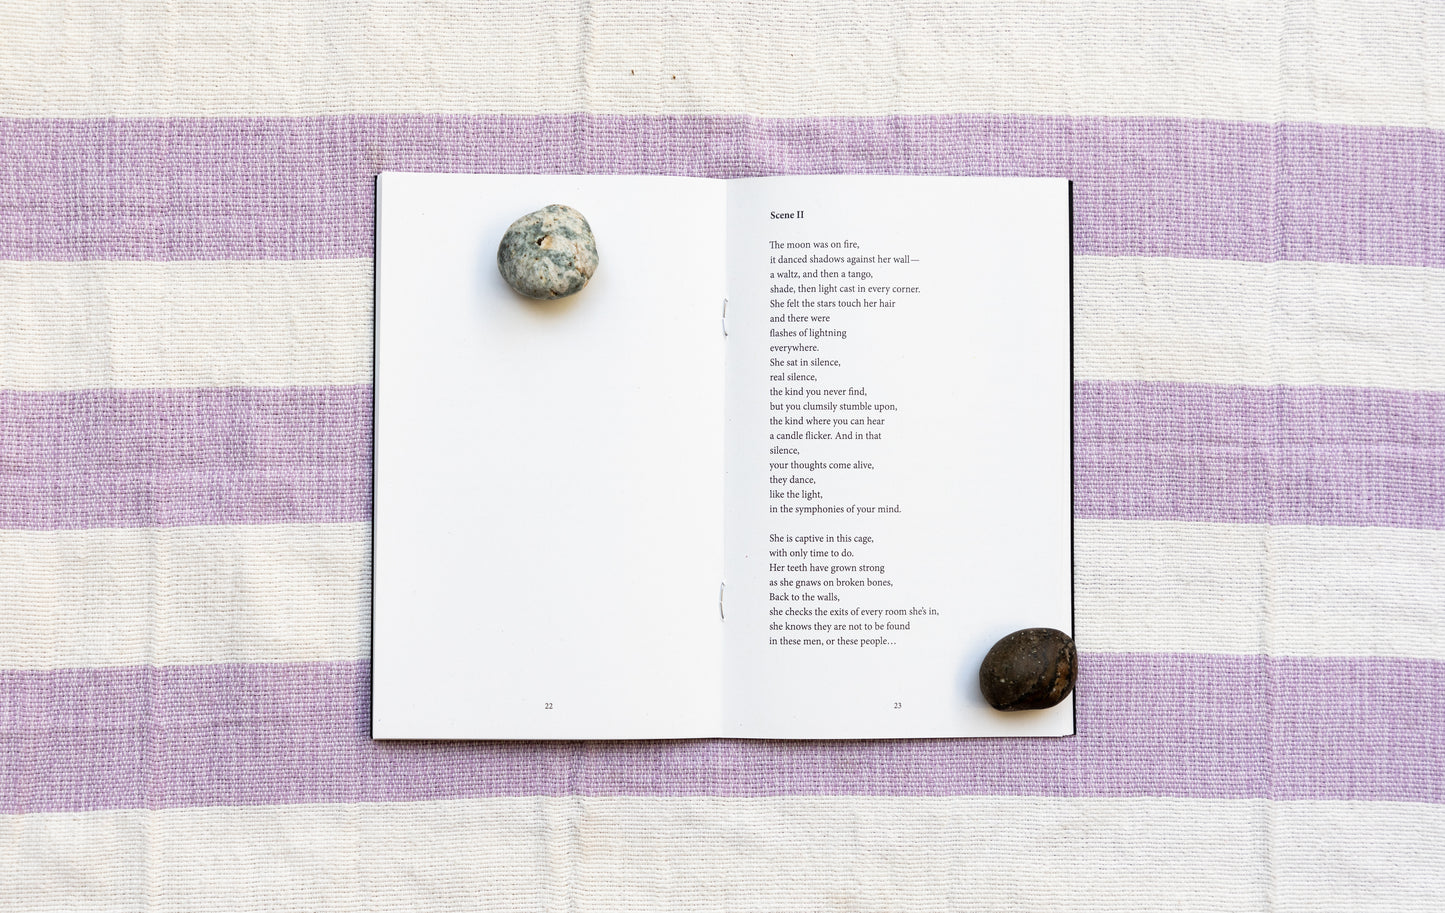 22
Scene II
The moon was on fire,
it danced shadows against her wall—
a waltz, and then a tango,
shade, then light cast in every corner.
She felt the stars touch her hair
and there were
flashes of lightning
everywhere.
She sat in silence,
real silence,
the kind you never find,
but you clumsily stumble upon,
the kind where you can hear
a candle flicker. And in that
silence,
your thoughts come alive,
they dance,
like the light,
in the symphonies of your mind.
She is captive in this cage,
with only time to do.
Her teeth have grown strong
as she gnaws on broken bones,
Back to the walls,
she checks the exits of every room she's in,
she knows they are not to be found
in these men, or these people…
23